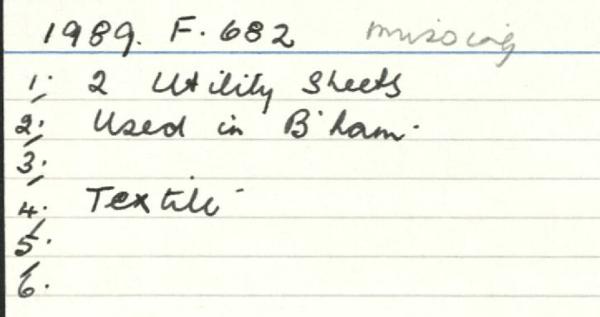 1989. F. 682 missing
1. 2 Utility Sheets
2. Used in B'ham.
3.
4. Textile
5.
6.